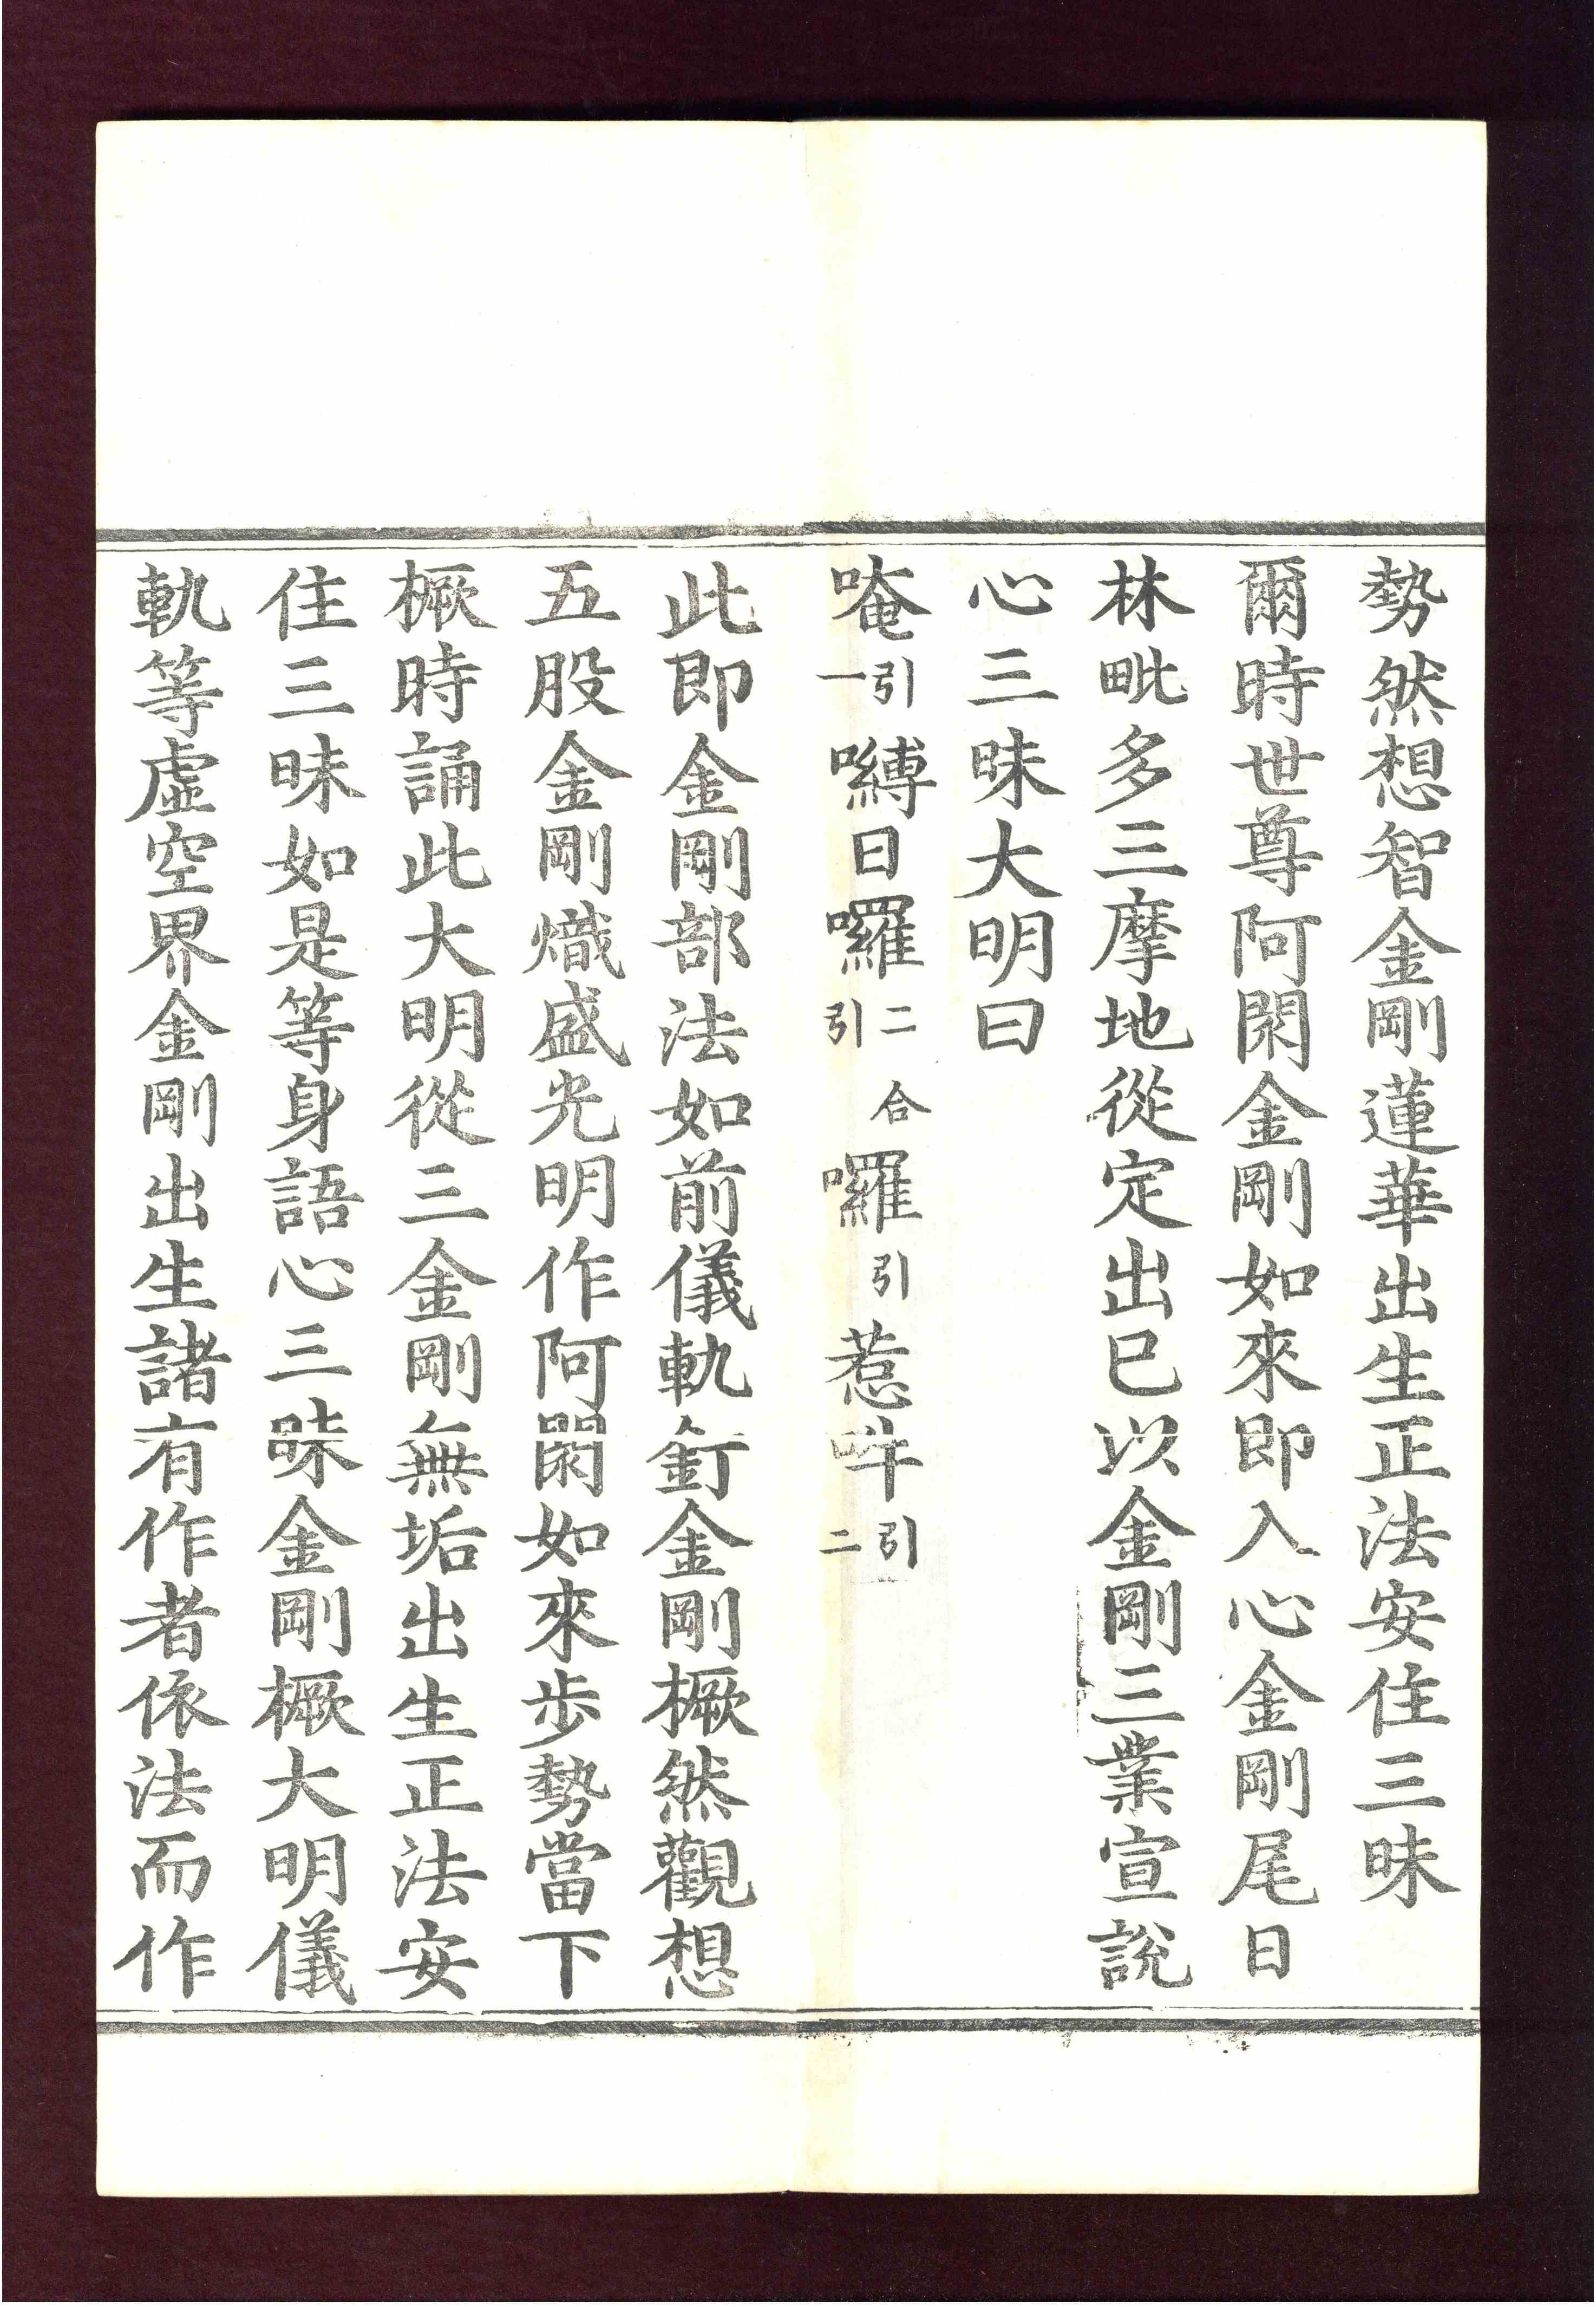 勢然想智金剛蓮華出生正法安住三昧
爾時世尊阿閦金剛如來即入心金剛尾日
林毗多三摩地從定出已以金剛三業宣說
心三昧大明曰
唵引一嚩日囉二合引囉引惹吽引二
此即金剛部法如前儀軌釘金剛橛然觀想
五股金剛熾盛光明作阿閦如來步勢當下
橛時誦此大明從三金剛無垢出生正法安
住三昧如是等身語心三昧金剛橛大明儀
軌等虛空界金剛出生諸有作者依法而作